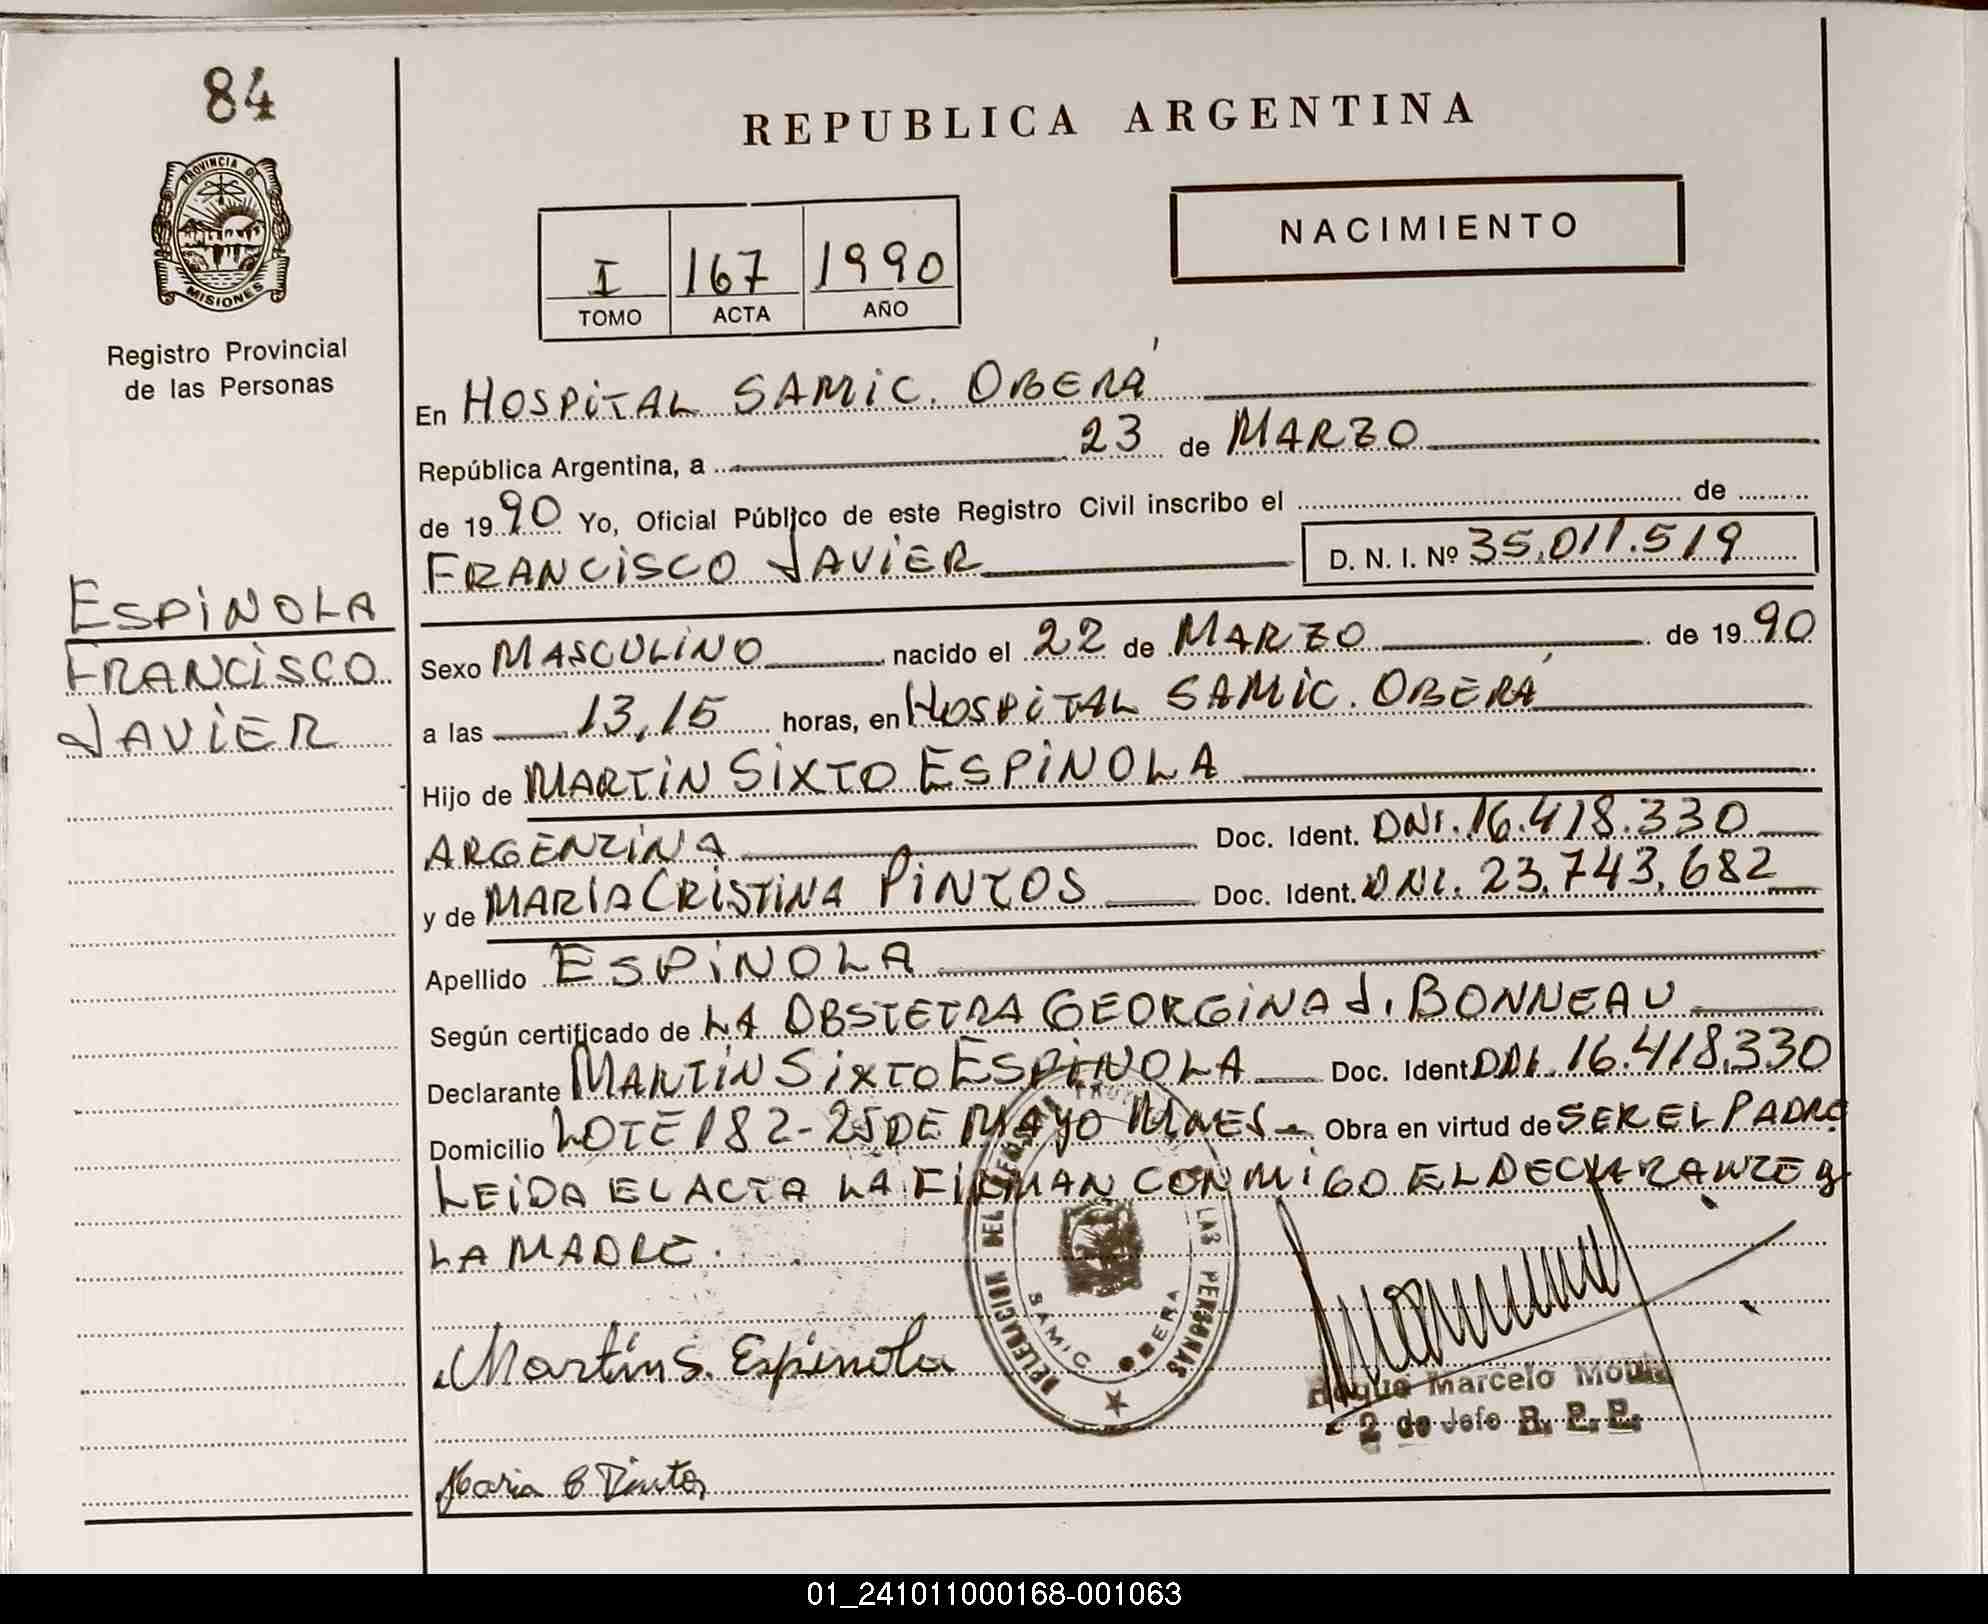 84
REPUBLICA ARGENTINA
PROVINCIA DE
MISIONES
Registro Provincial
de las Personas
NACIMIENTO
I 167 1990
TOMO ACTA AÑO
En HOSPITAL SAMIC. OBERÁ
República Argentina, a 23 de MARZO
de 1990 Yo, Oficial Público de este Registro Civil inscribo el de
FRANCISCO JAVIER D. N. I. Nº 35.011.519
ESPINOLA
FRANCISCO
JAVIER
Sexo MASCULINO nacido el 22 de MARZO de 1990
a las 13,15 horas, en HOSPITAL SAMIC. OBERÁ
Hijo de MARTIN SIXTO ESPINOLA
ARGENTINA Doc. Ident. DNI. 16.418.330
y de MARIA CRISTINA PINTOS Doc. Ident. DNI. 23.743.682
Apellido ESPINOLA
Según certificado de LA OBSTETRA GEORGINA J. BONNEAU
Declarante MARTIN SIXTO ESPINOLA Doc. Ident DNI. 16.418.330
Domicilio LOTE 182-25 DE MAYO MNES- Obra en virtud de SER EL PADRE
LEIDA EL ACTA LA FIRMAN CONMIGO EL DECLARANTE y
LA MADRE.
DELEGACION DEL LAS PERSONAS
SAMIC OBERA
Martin S. Espinola
Roque Marcelo
2 de Jefe R. P. P.
Maria C Pintos
01_241011000168-001063